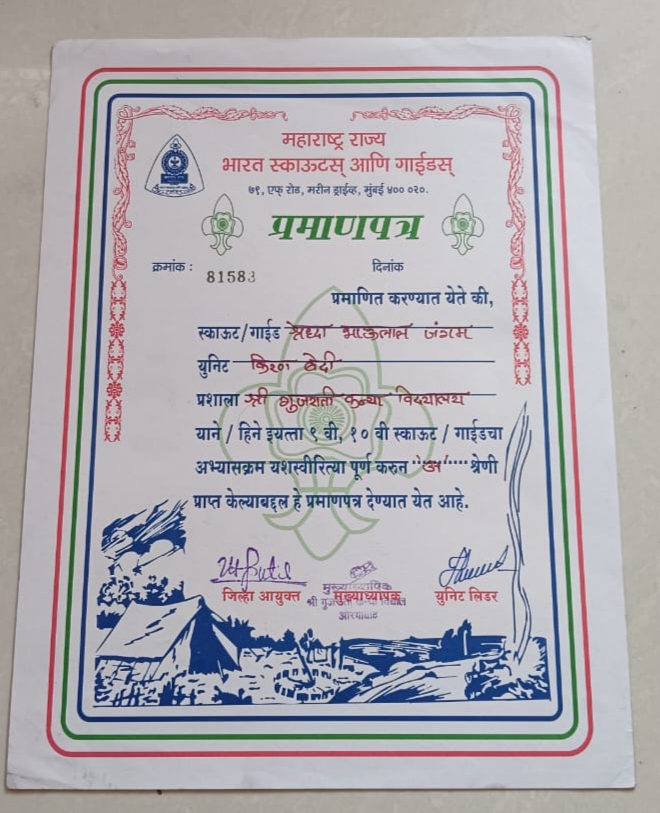 महाराष्ट्र राज्य
भारत स्काऊटस् आणि गाईडस्
७९, एफ् रोड, मरीन ड्राईव्ह, मुंबई ४०० ०२०.
प्रमाणपत्र
क्रमांक : 81583 दिनांक
प्रमाणित करण्यात येते की,
स्काऊट/गाईड श्रध्दा भाऊलाल जंगम
युनिट किरण बेदी
प्रशाला श्री गुजराती कन्या विद्यालय
याने / हिने इयत्ता ९ वी, १० वी स्काऊट / गाईडचा
अभ्यासक्रम यशस्वीरित्या पूर्ण करुन "अ" श्रेणी
प्राप्त केल्याबद्दल हे प्रमाणपत्र देण्यात येत आहे.
मुख्याध्यापिका
जिल्हा आयुक्त मुख्याध्यापक युनिट लिडर
श्री गुजराती कन्या